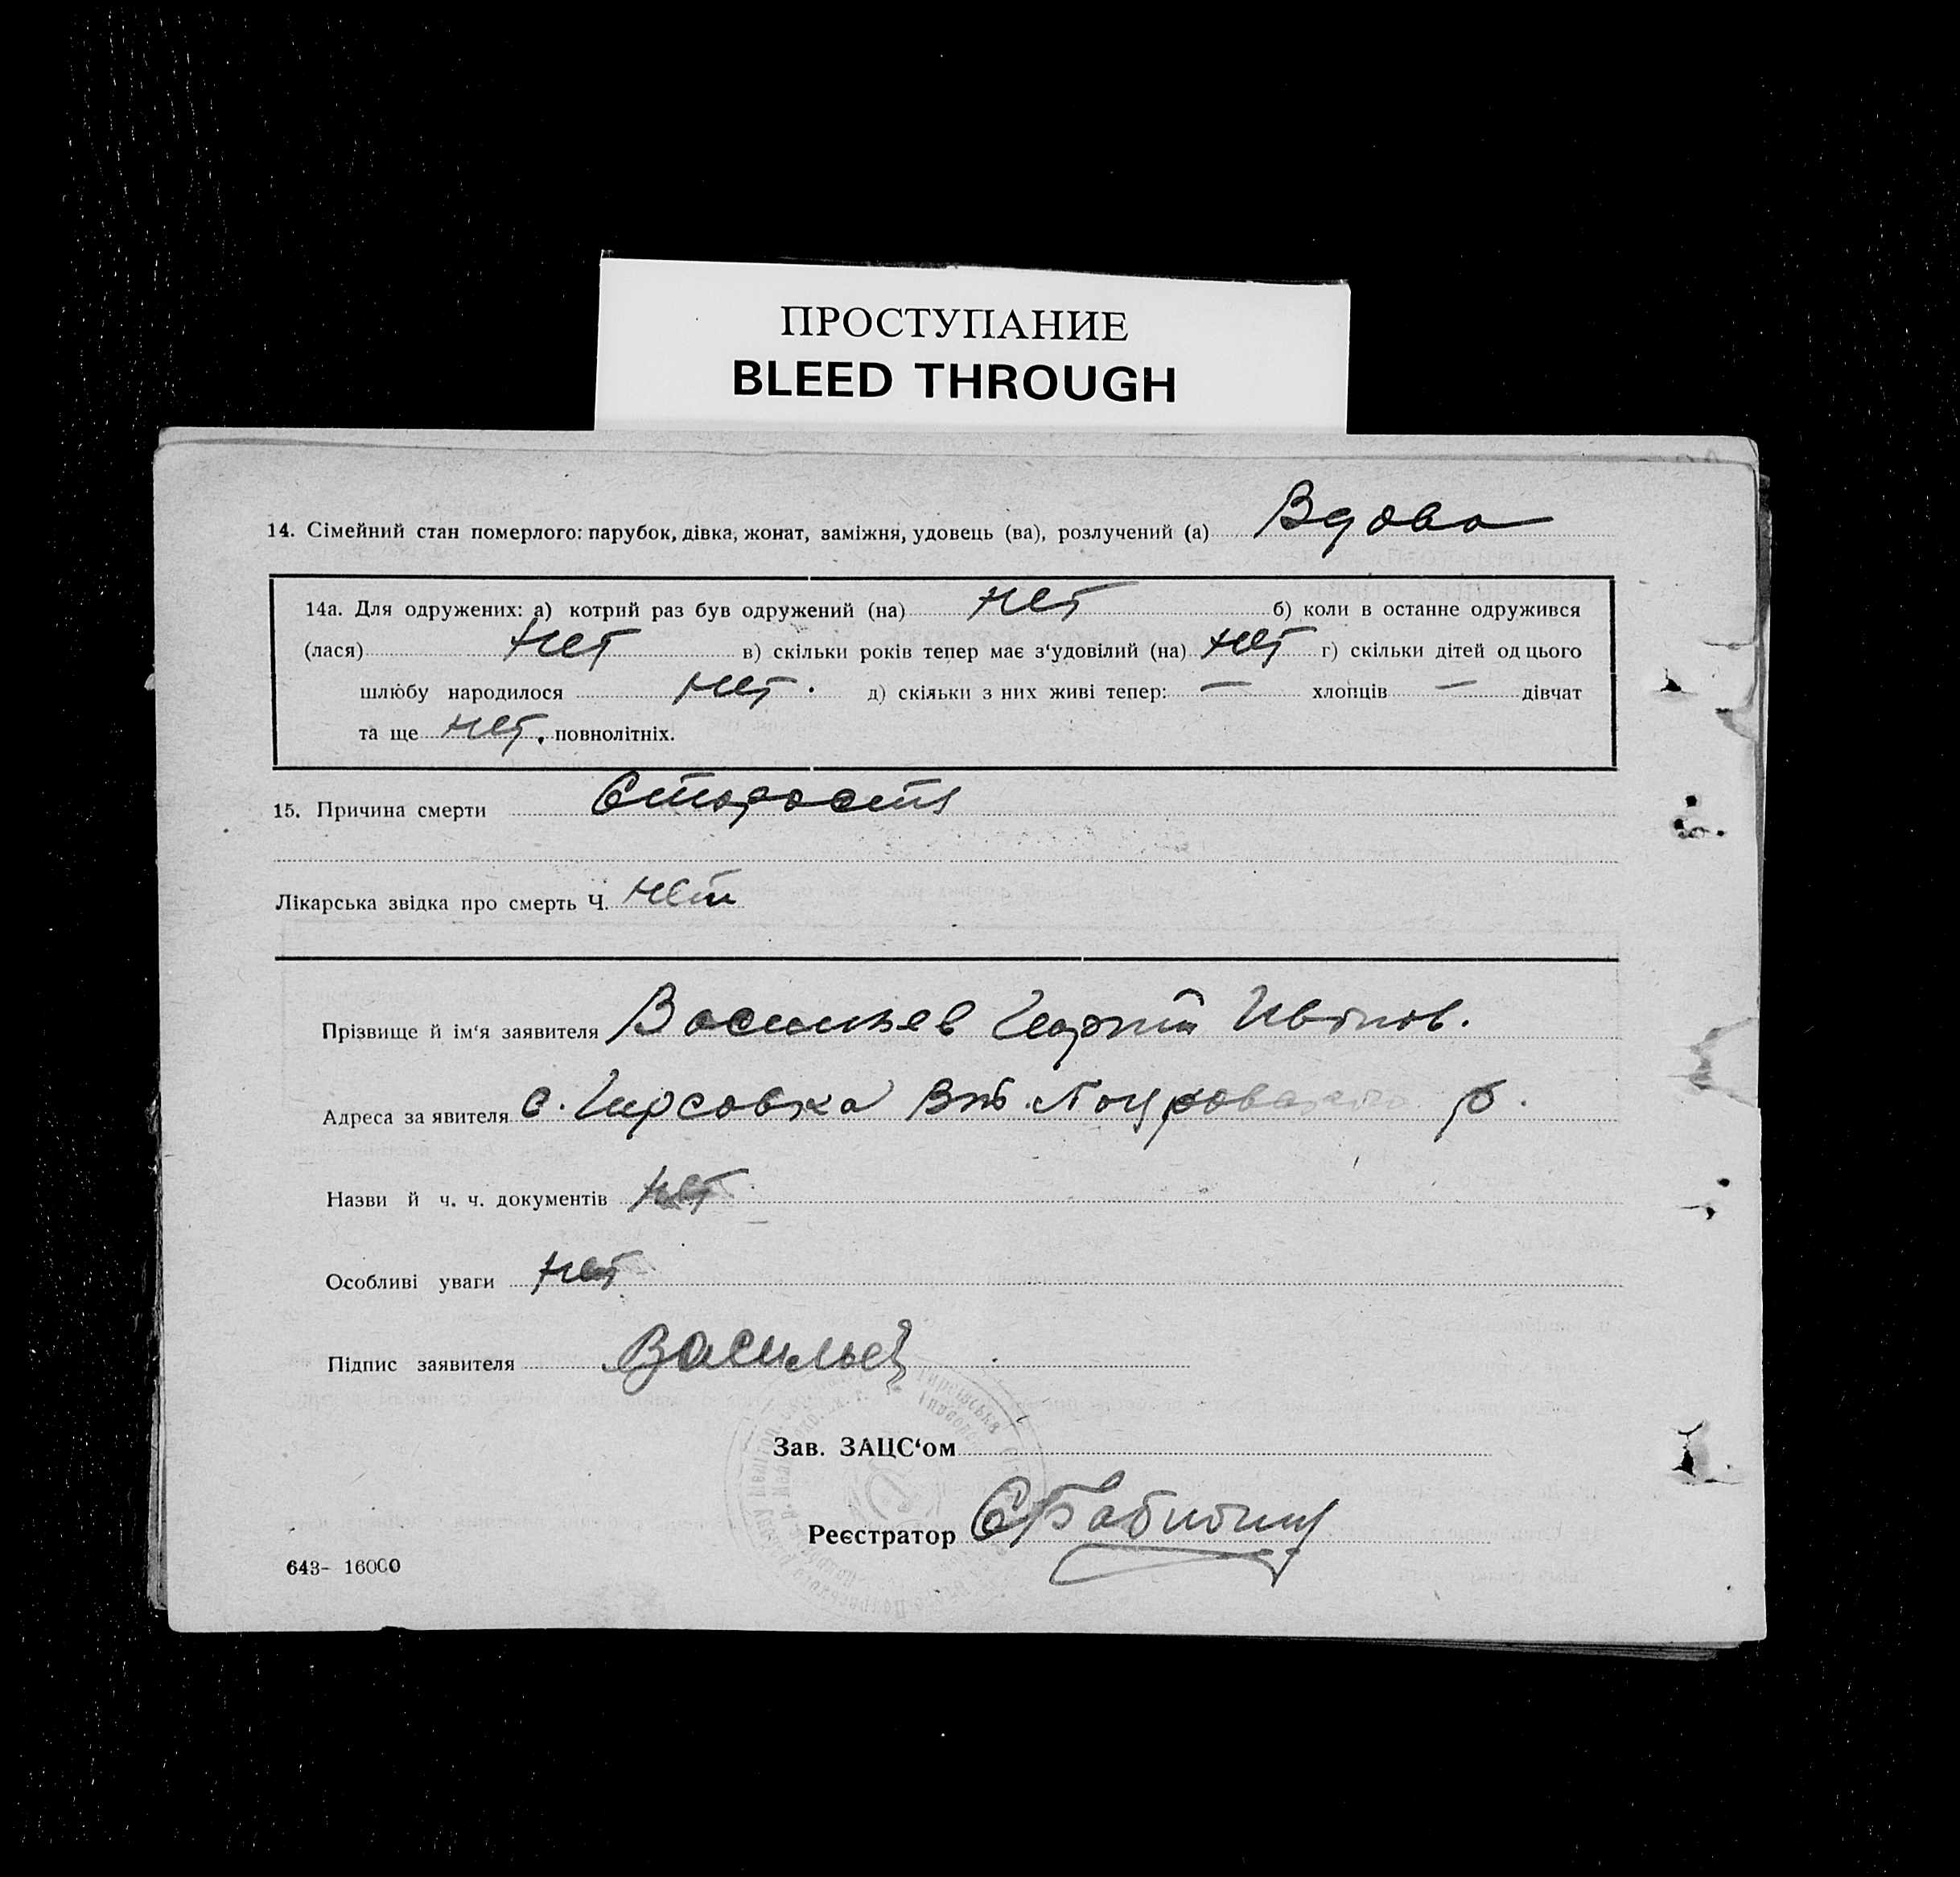 ПРОСТУПАНИЕ
BLEED THROUGH
14. Сімейний стан померлого: парубок, дівка, жонат, заміжня, удовець (ва), розлучений (а) Вдова
14а. Для одружених: а) котрий раз був одружений (на) нет б) коли в останне одружився
(лася) нет в) скільки років тепер має з‘удовілий (на) нет г) скільки дітей од цього
шлюбу народилося нет. д) скільки з них живі тепер: — хлопців — дівчат
та ще нет. повнолітніх.
15. Причина смерти Старость
Лікарська звідка про смерть Ч. нет
Прізвище й ім‘я заявителя Васильев Георгий Иванов.
Адреса за явителя с. Кирсовка р.
Назви й ч. ч. документів нет
Особливі уваги нет
Підпис заявителя Васильев
Зав. ЗАЦС‘ом
Реєстратор
643- 16000